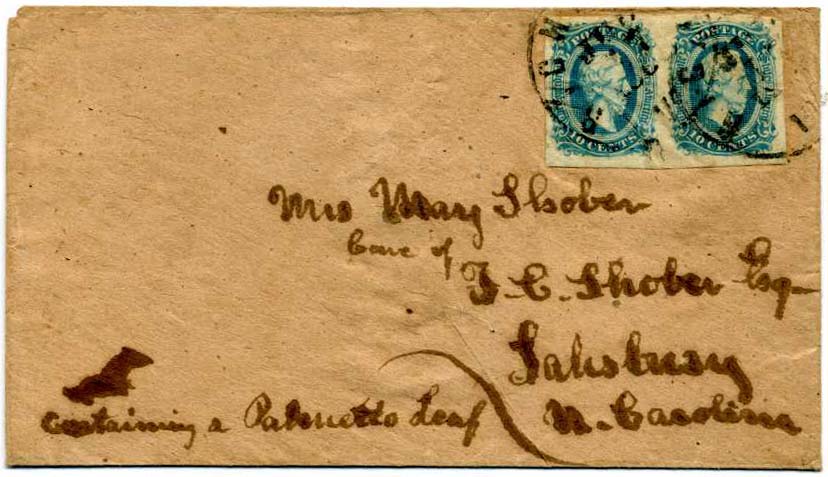 POSTAGE POSTAGE
10 CENTS 10 CENTS
Mrs Mary Shober
Care of
F. E. Shober Esq
Salisbury
N. Carolina
Containing a Palmetto Leaf